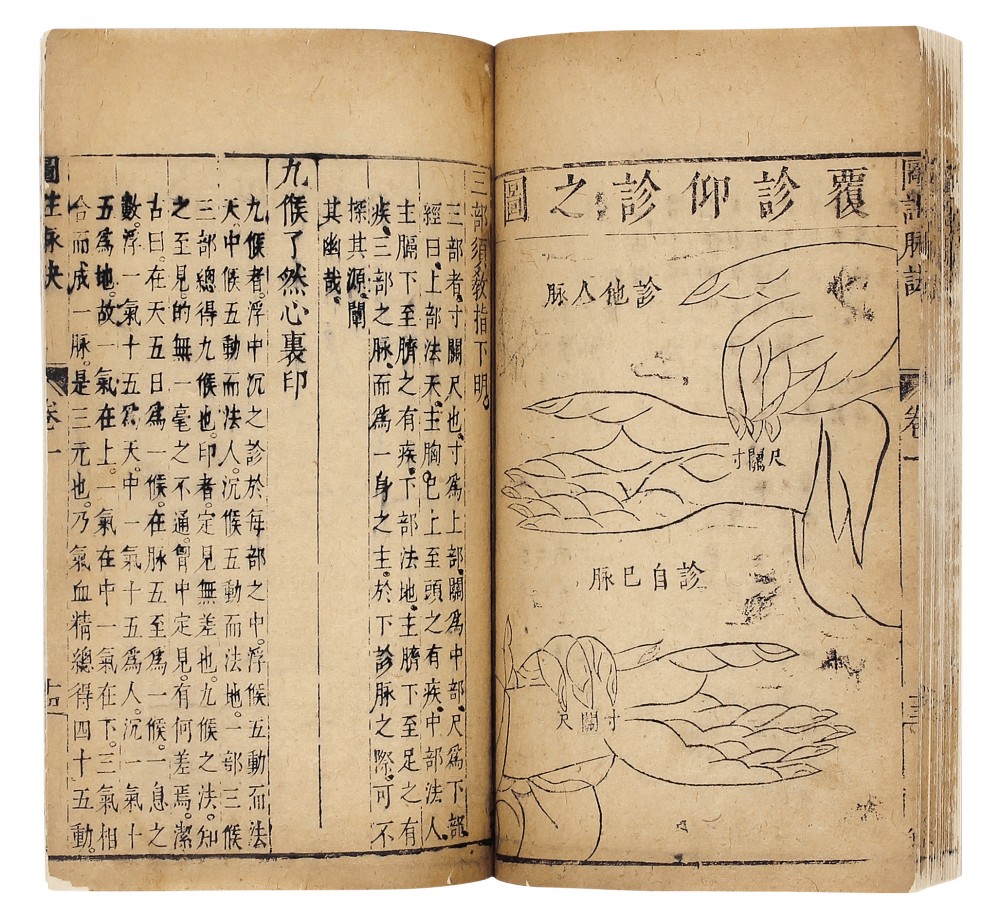 圖註脈訣 卷一 十三
覆診仰診之圖
診他人脈
尺關寸
診自巳脈
寸關尺
三部須敎指下明。
三部者、寸關尺也、寸爲上部、關爲中部、尺爲下部、
經曰、上部法天、主胸巳上至頭之有疾、中部法人、
主膈下至臍之有疾、下部法地、主臍下至足之有
疾、三部之脈、而爲一身之主、於下診脈之際、可不
探其源、闡
其幽哉、
九候了然心裏印
九候者、浮中沉之診於每部之中、浮候五動而法
天、中候五動而法人、沉候五動而法地。一部三候
三部總得九候也。印者、定見無差也。九候之法、知
之至見、的無一毫之不通。胷中定見、有何差焉。潔
古曰、在天五日爲一候、在脈五至爲一候。一息之
數、浮一氣十五爲天、中一氣十五爲人、沉一氣十
五爲地。故一氣在上、一氣在中、一氣在下。三氣相
合而成一脈。是三元也。乃氣血精總得四十五動。
圖註脉訣 卷一 十四